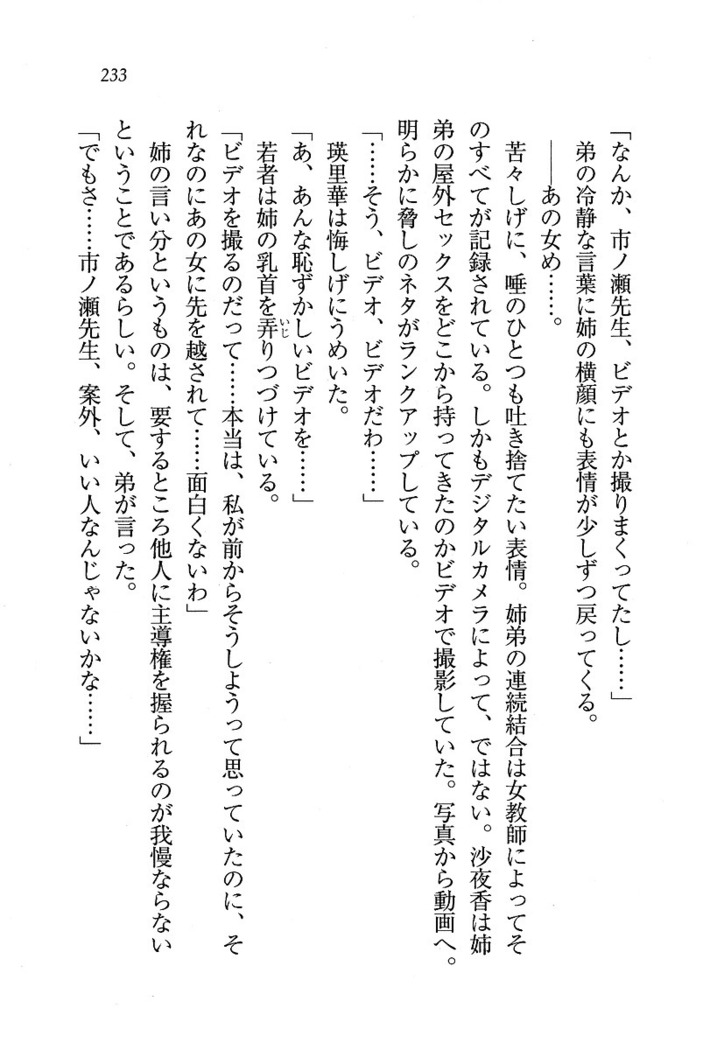 233
「なんか、市ノ瀬先生、ビデオとか撮りまくってたし……」
弟の冷静な言葉に姉の横顔にも表情が少しずつ戻ってくる。
――あの女め……。
苦々しげに、唾のひとつも吐き捨てたい表情。姉弟の連続結合は女教師によってそ
のすべてが記録されている。しかもデジタルカメラによって、ではない。沙夜香は姉
弟の屋外セックスをどこから持ってきたのかビデオで撮影していた。写真から動画へ。
明らかに脅しのネタがランクアップしている。
「……そう、ビデオ、ビデオだわ……」
瑛里華は悔しげにうめいた。
「あ、あんな恥ずかしいビデオを……」
若者は姉の乳首を弄りつづけている。
いじ
「ビデオを撮るのだって……本当は、私が前からそうしようって思っていたのに、そ
れなのにあの女に先を越されて……面白くないわ」
姉の言い分というものは、要するところ他人に主導権を握られるのが我慢ならない
ということであるらしい。そして、弟が言った。
「でもさ……市ノ瀬先生、案外、いい人なんじゃないかな……」